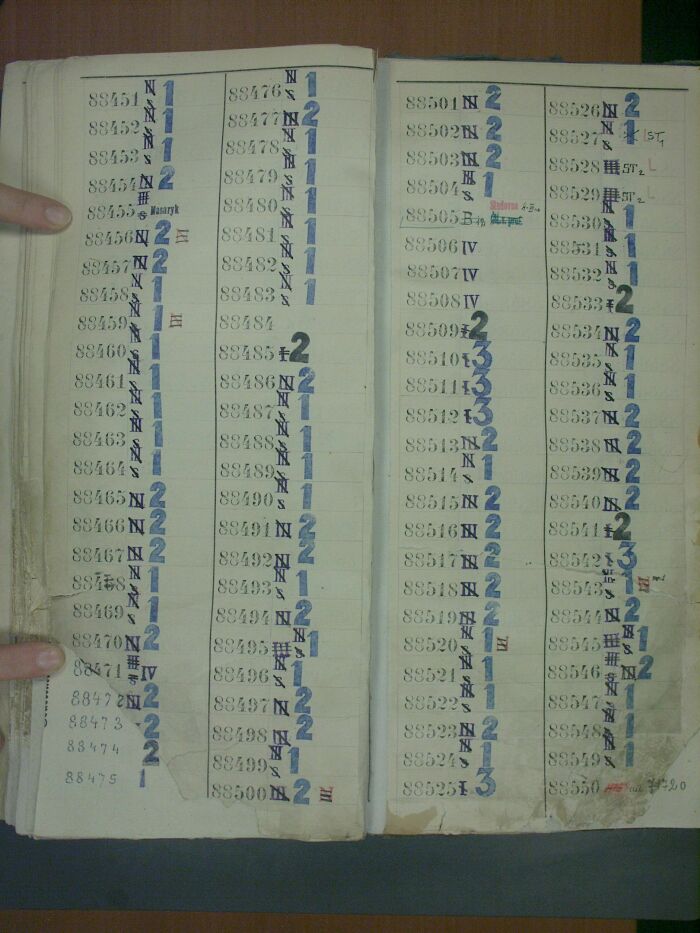 88451 N S 1
88452 N S 1
88453 N S 1
88454 N 2
88455 S Masaryk
88456 N 2 III
88457 N 2
88458 N S 1
88459 N S 1 III
88460 N S 1
88461 N S 1
88462 N S 1
88463 N S 1
88464 N S 1
88465 N 2
88466 N 2
88467 N 2
88468 N S 1
88469 N S 1
88470 N 2
88471 IV
88472 N 2
88473 2
88474 2
88475 1
88476 N S 1
88477 N 2
88478 N S 1
88479 N S 1
88480 N S 1
88481 N S 1
88482 N S 1
88483 N S 1
88484
88485 I 2
88486 N 2
88487 N S 1
88488 N S 1
88489 N S 1
88490 N S 1
88491 N 2
88492 N 2
88493 N S 1
88494 N 2
88495 N S 1
88496 N S 1
88497 N 2
88498 N 2
88499 N S 1
88500 N 2 III
88501 N 2
88502 N 2
88503 N 2
88504 N S 1
88505
88506 IV
88507 IV
88508 IV
88509 I 2
88510 I 3
88511 I 3
88512 I 3
88513 N 2
88514 N S 1
88515 N 2
88516 N 2
88517 N 2
88518 N 2
88519 N 2
88520 N S 1 III
88521 N S 1
88522 N S 1
88523 N 2
88524 N S 1
88525 I 3
88526 N 2
88527 S 1 ST1
88528 ST2 L
88529 ST2 L
88530 N S 1
88531 N S 1
88532 N S 1
88533 I 2
88534 N 2
88535 N S 1
88536 N S 1
88537 N 2
88538 N 2
88539 N 2
88540 N 2
88541 I 2
88542 I 3
88543 S 1
88544 N 2
88545 N S 1
88546 N 2
88547 N S 1
88548 N S 1
88549 N S 1
88550 71720